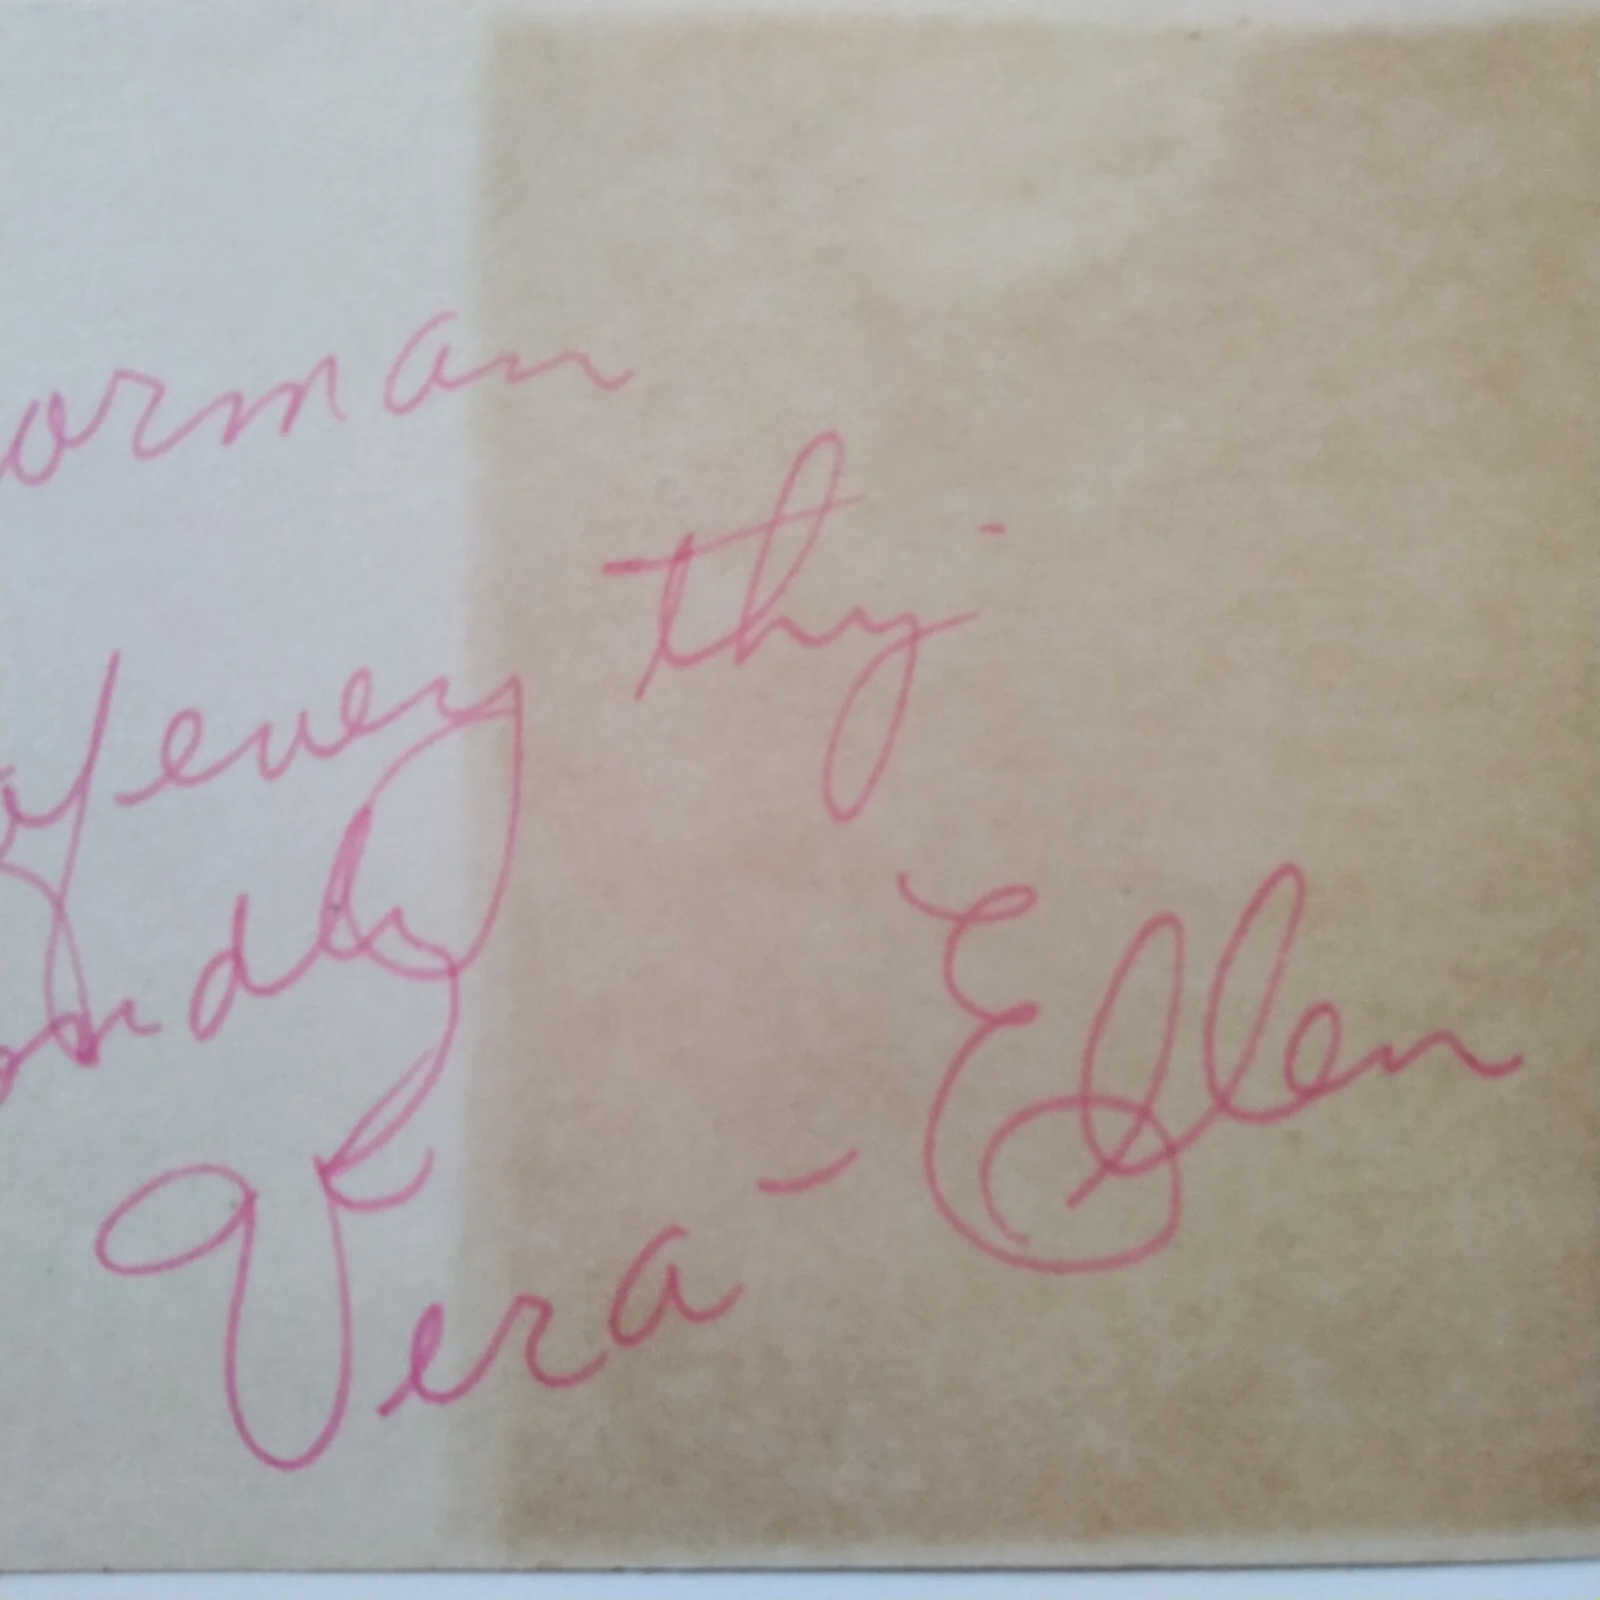 orman
of every thg -
ondly
Vera - Ellen